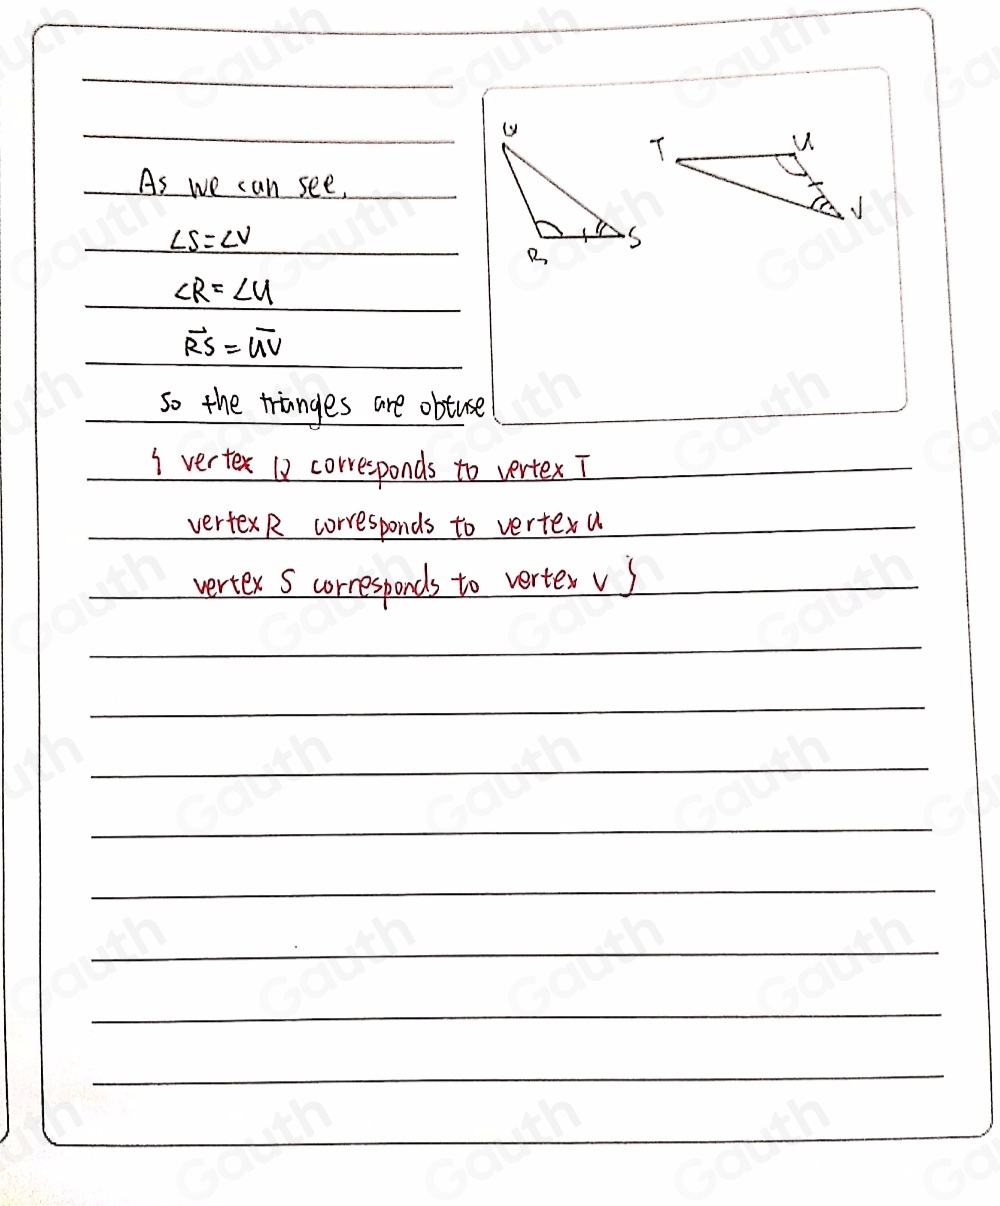 As we can see,
∠S=∠V
∠R=∠U
R⃗S = U̅V̅
So the trianges are obtuse
{ vertex Q corresponds to vertex T
vertex R corresponds to vertex U
vertex S corresponds to vertex V }
Q
R
S
T
U
V
Gauth